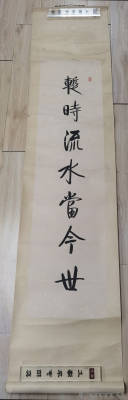 暫時流水當今世